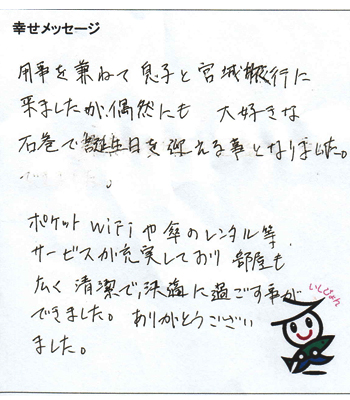 幸せメッセージ
用事を兼ねて息子と宮城旅行に
来ましたが、偶然にも 大好きな
石巻で誕生日を迎える事となりました。
ポケットWiFiや傘のレンタル等、
サービスが充実しており 部屋も
広く清潔で、快適に過ごす事が
できました。ありがとうござい
ました。
いしぴょん